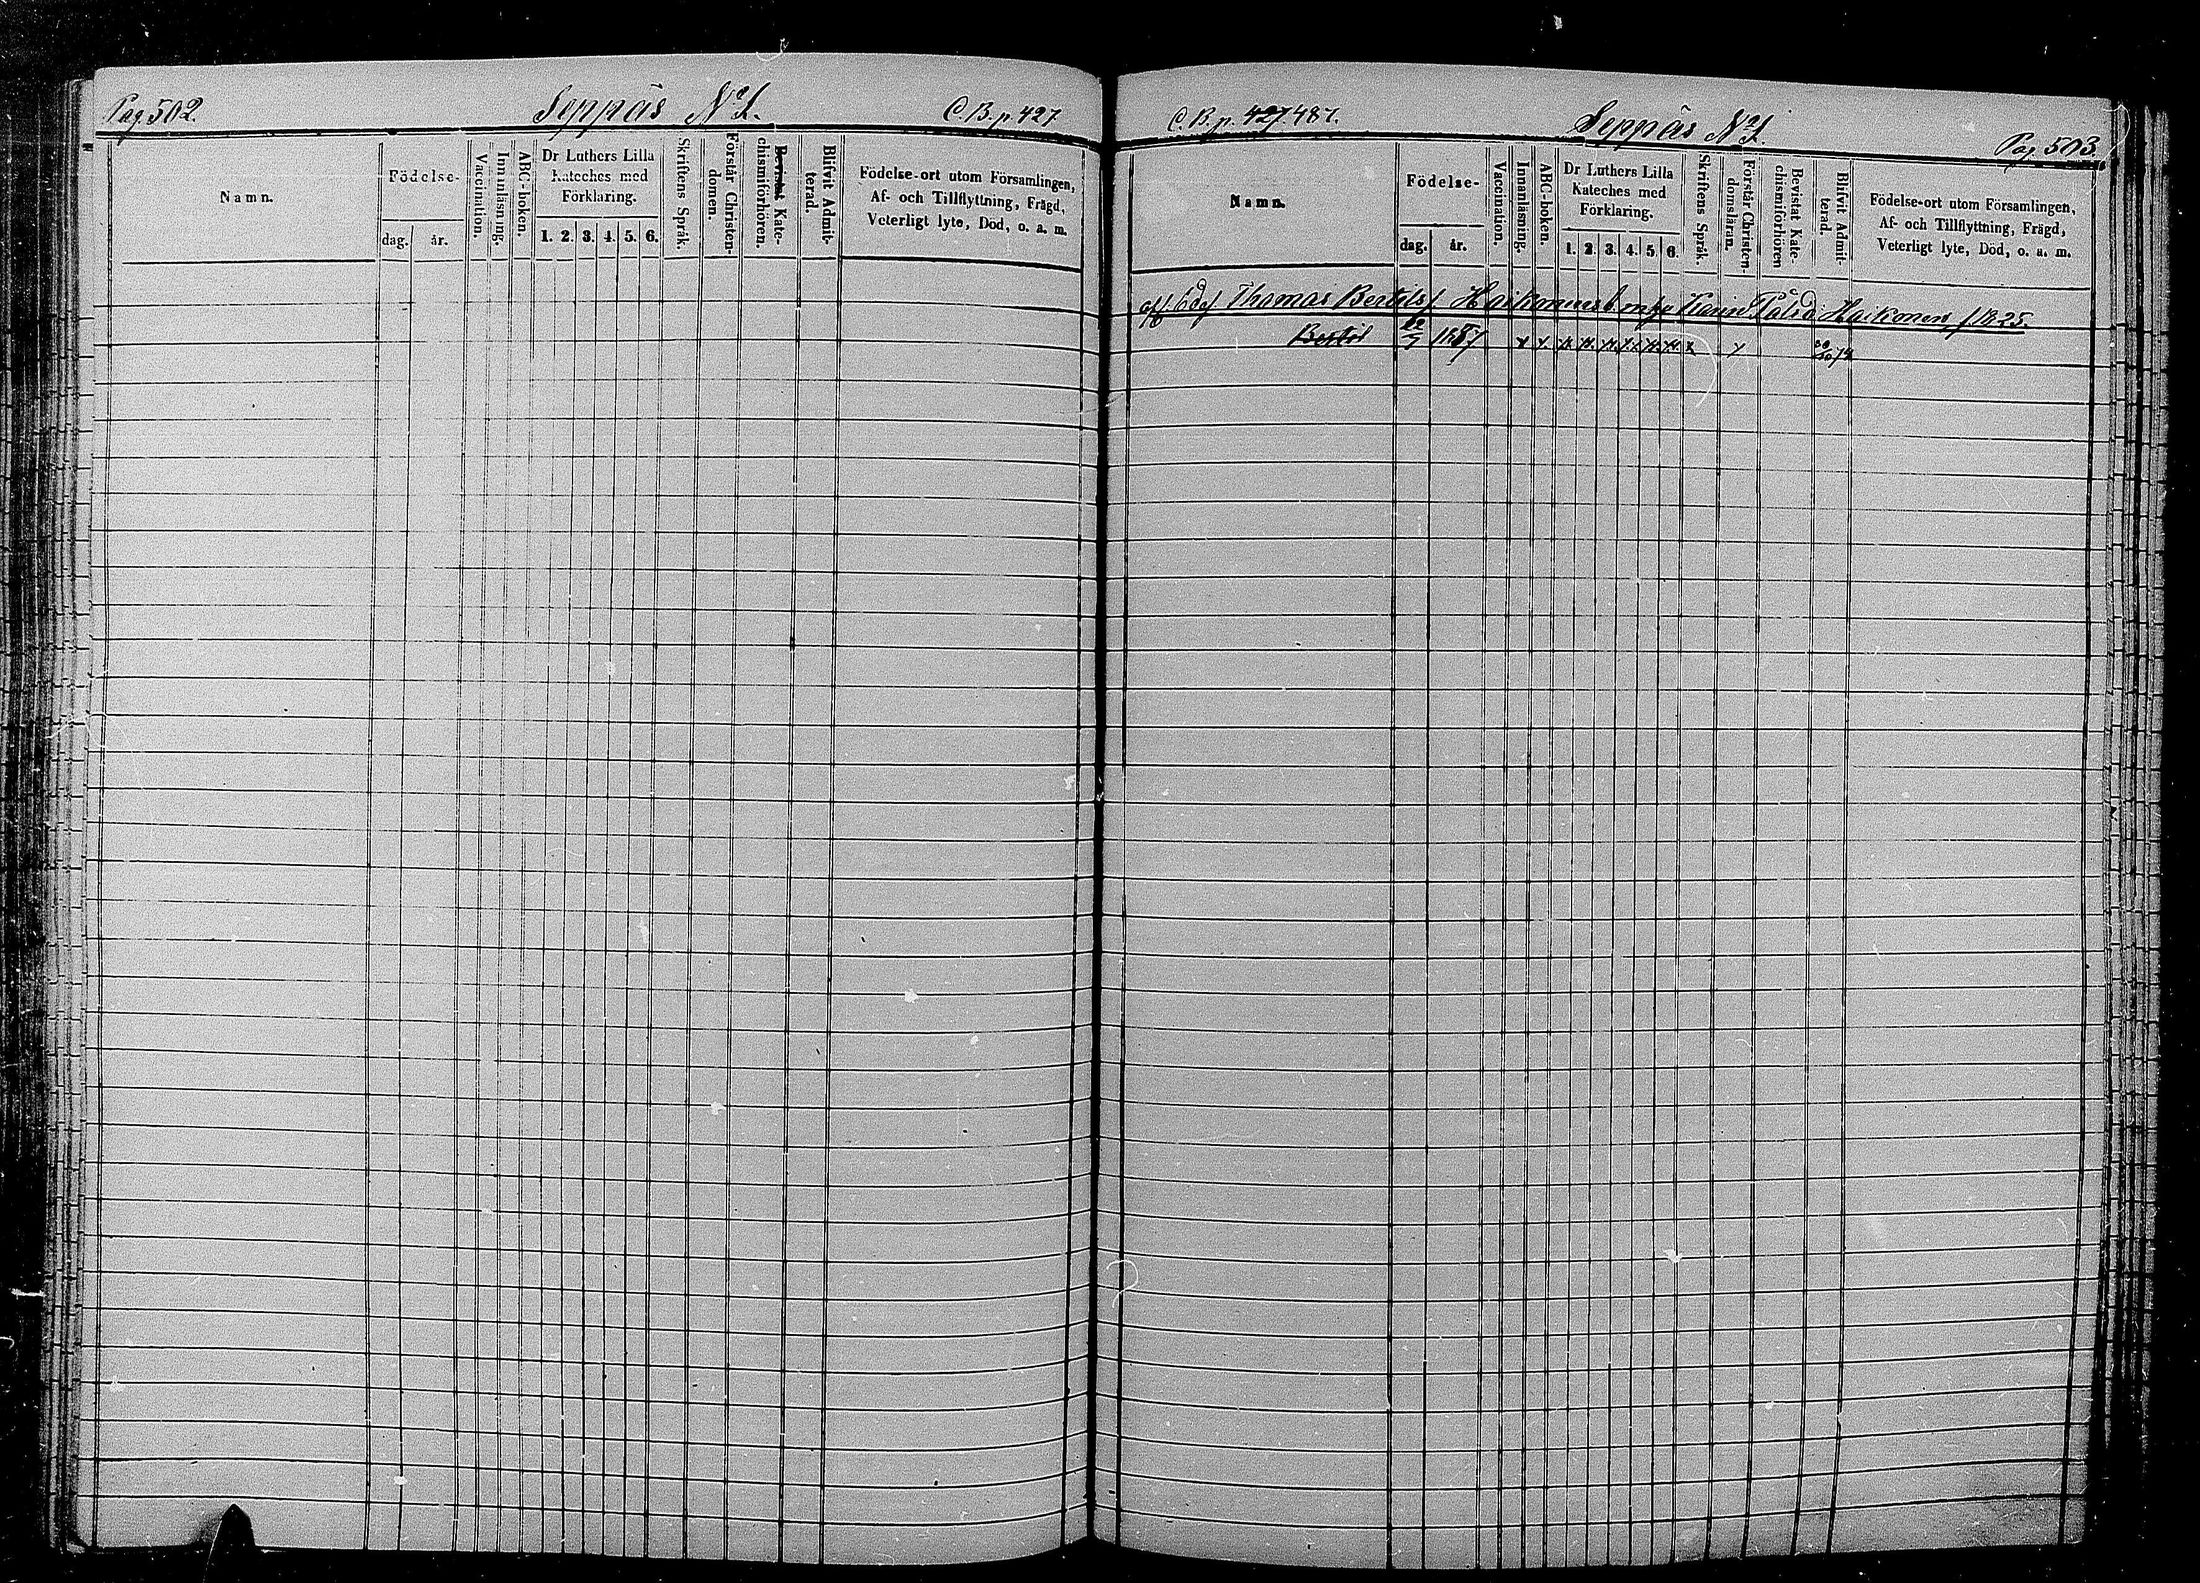 Pag. 502.
Seppäs No 1.
C. B. p. 427
Namn.
Födelse-
dag. år.
Vaccination.
Innanläsning.
ABC-boken.
Dr Luthers Lilla
Kateches med
Förklaring.
1. 2. 3. 4. 5. 6.
Skriftens Språk.
Förstår Christen-
domen.
Bevistat Kate-
chismiförhören.
Blifvit Admit-
terad.
Födelse-ort utom Församlingen,
Af- och Tillflyttning, Frägd,
Veterligt lyte, Död, o. a. m.
C. B. p. 427. 487.
Seppäs No 1.
Pag. 503.
Namn.
Födelse-
dag. år.
Vaccination.
Innanläsning.
ABC-boken.
Dr Luthers Lilla
Kateches med
Förklaring.
1. 2. 3. 4. 5. 6.
Skriftens Språk.
Förstår Christen-
domsläran.
Bevistat Kate-
chismiförhören
Blifvit Admit-
terad.
Födelse-ort utom Församlingen,
Af- och Tillflyttning, Frägd,
Veterligt lyte, Död, o. a. m.
Thomas Bertils Haikonens Karin Pålsd: Haikonen, f. 1825.
Bertil x x x x